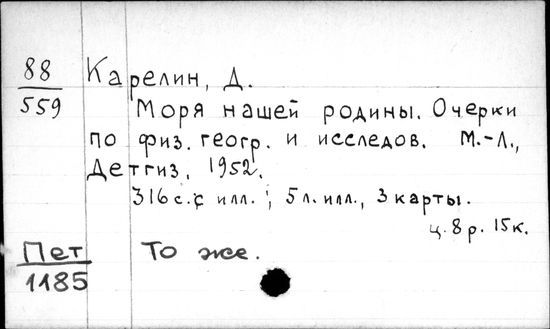 88 Карелин, Д.
559 Моря нашей родины. Очерки
по физ. геогр. и исследов. М.-Л.,
Детгиз, 1952.
316 с. с илл.; 5 л. илл., 3 карты.
ц. 8 р. 15 к.
Пет То же.
1185